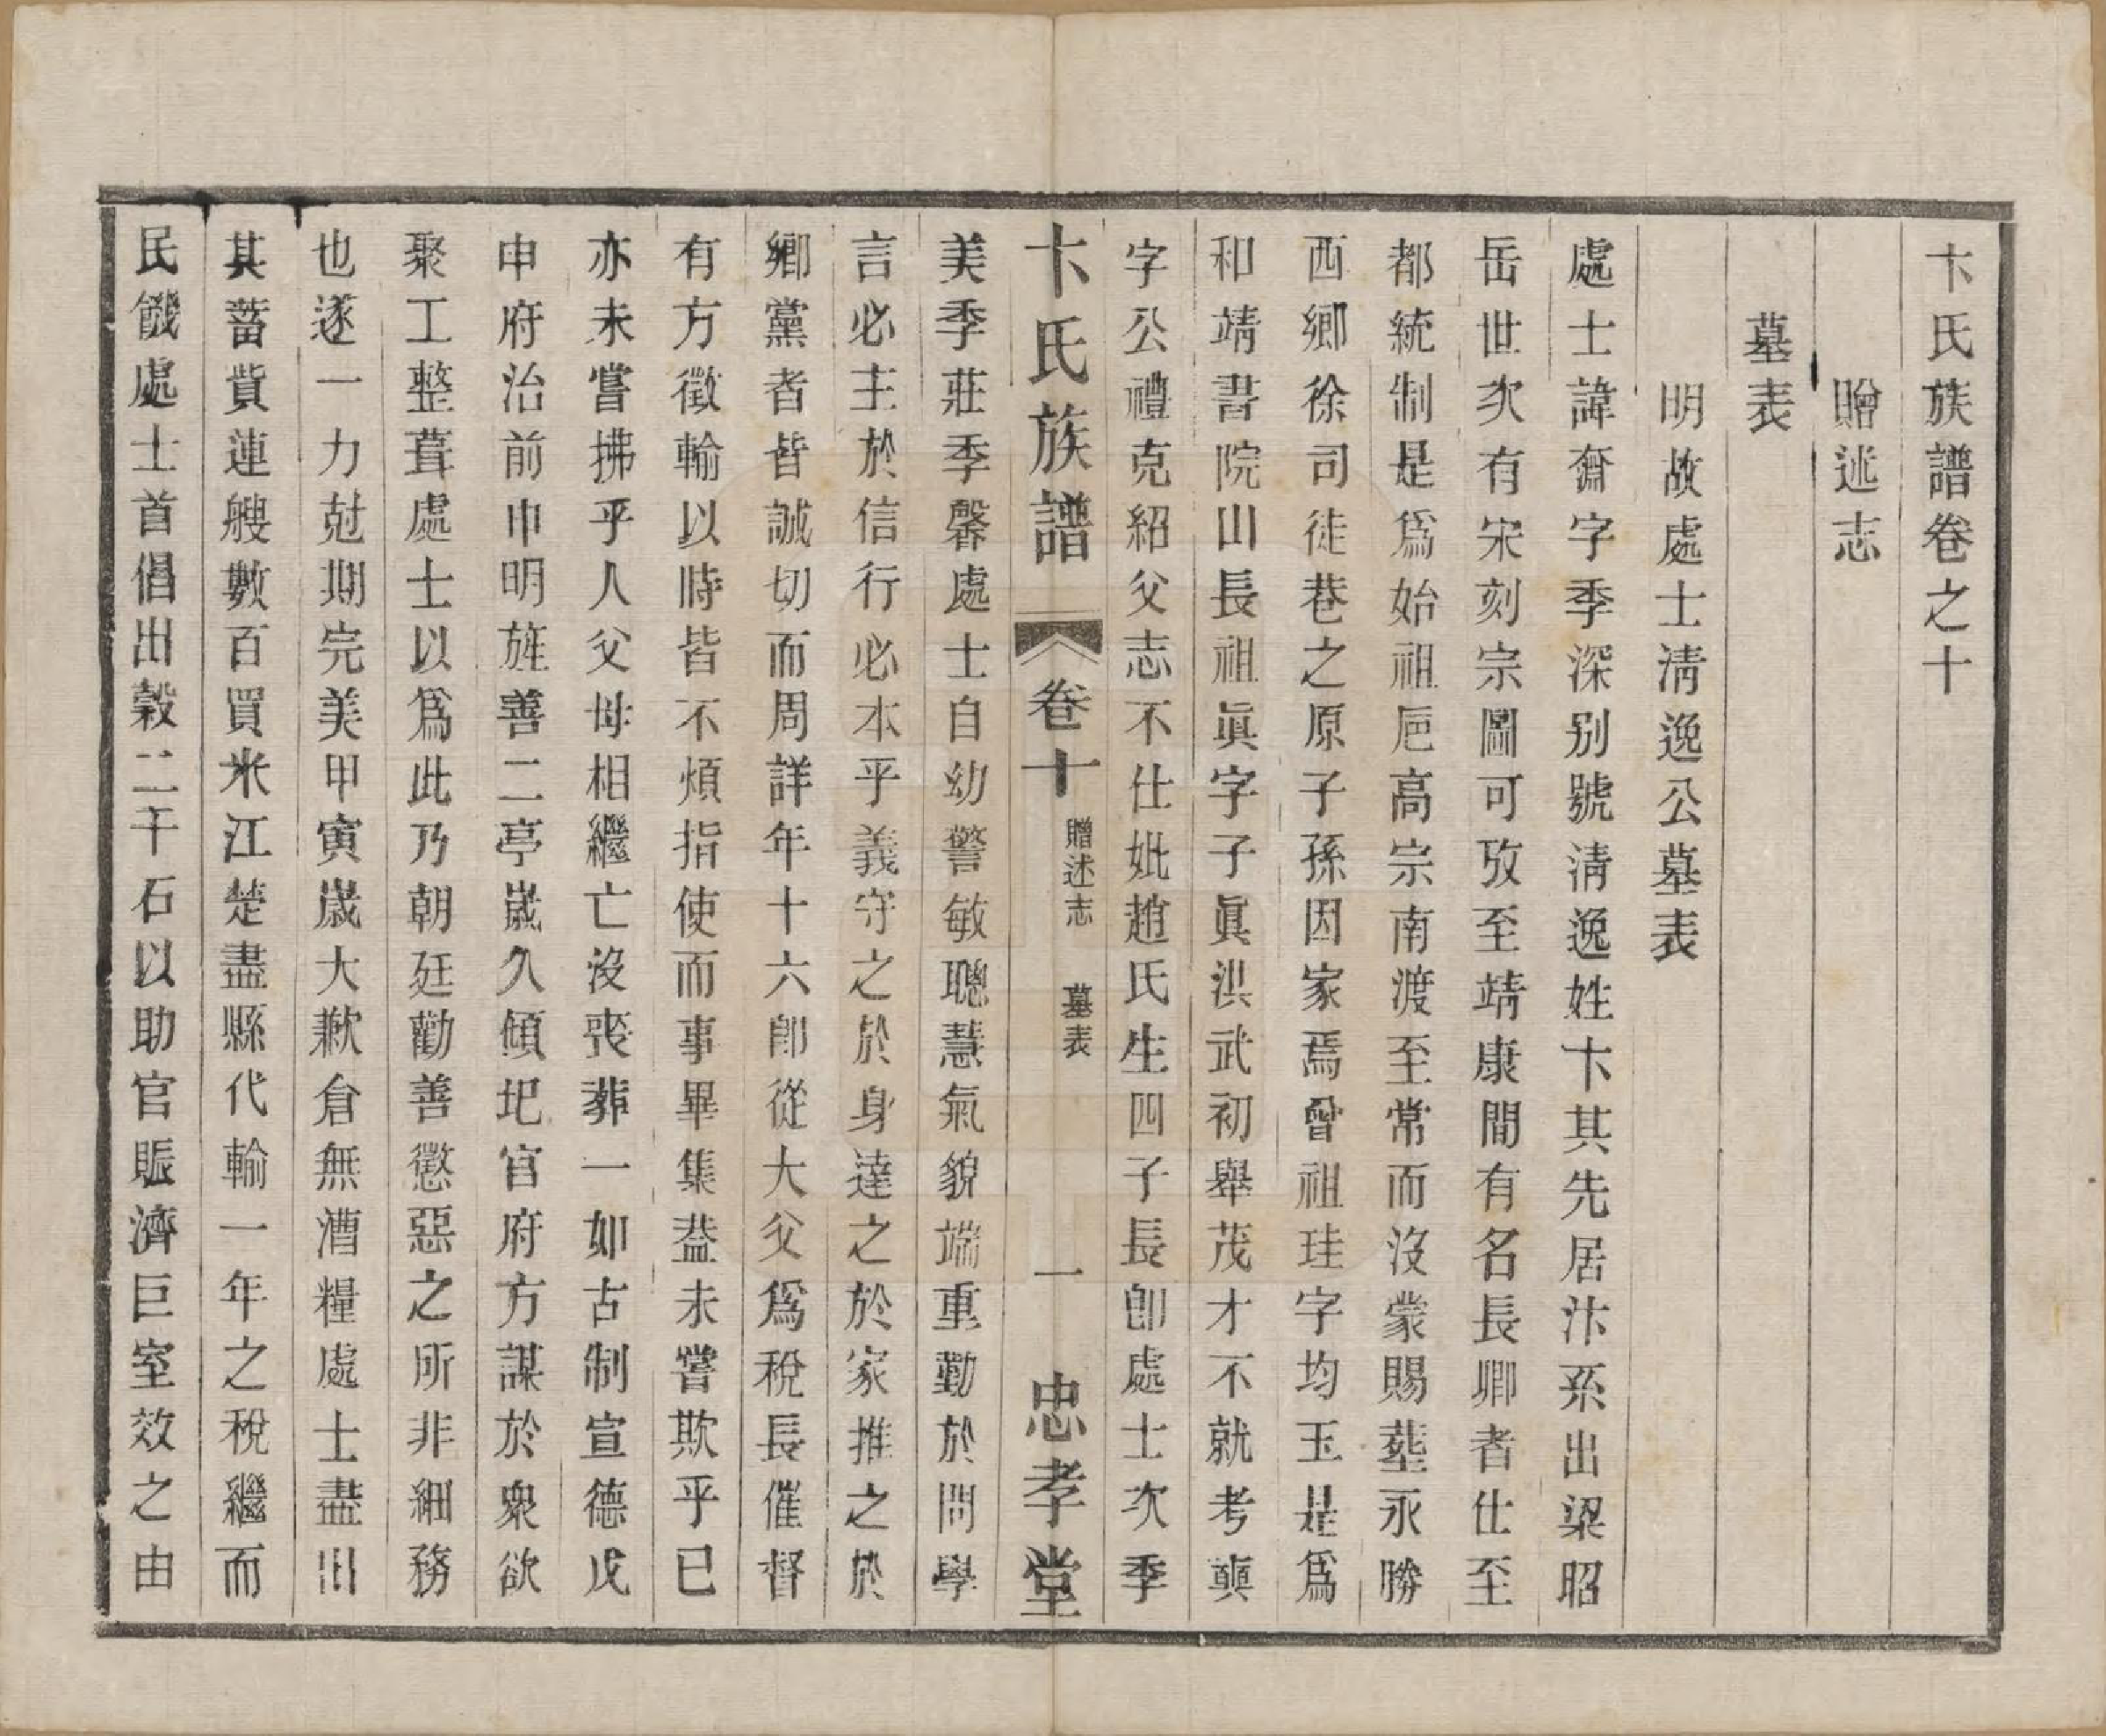 卞氏族譜卷之十
贈述志
墓表
明故處士淸逸公墓表
處士諱奫字季深别號淸逸姓卞其先居汴系出梁昭
岳世次有宋刻宗圖可攷至靖康間有名長卿者仕至
都統制是爲始祖扈高宗南渡至常而沒蒙賜塟永勝
西鄉徐司徒巷之原子孫因家焉曾祖珪字均玉是爲
和靖書院山長祖眞字子眞洪武初舉茂才不就考䪻
字公禮克紹父志不仕妣趙氏生四子長卽處士次季
卞氏族譜 卷十 贈述志 墓表 一 忠孝堂
美季莊季馨處士自幼警敏聰慧氣貌端重勤於問學
言必主於信行必本乎義守之於身達之於家推之於
鄉黨者皆誠切而周詳年十六卽從大父爲稅長催督
有方徵輸以時皆不煩指使而事畢集葢未嘗欺乎已
亦未嘗拂乎人父母相繼亡沒喪葬一如古制宣德戊
申府治前申明旌善二亭歲久傾圯官府方謀於衆欲
聚工整葺處士以爲此乃朝廷勸善懲惡之所非細務
也遂一力尅期完美甲寅歲大歉倉無漕糧處士盡出
其蓄貲連艘數百買米江楚盡縣代輸一年之稅繼而
民饑處士首倡出穀二千石以助官賑濟巨室效之由